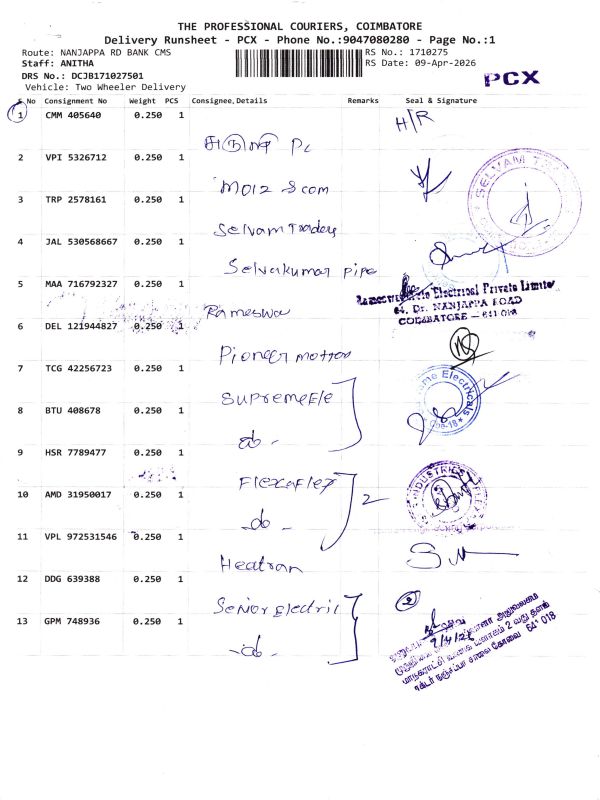 THE PROFESSIONAL COURIERS, COIMBATORE
Delivery Runsheet - PCX - Phone No.:9047080280 - Page No.:1
Route: NANJAPPA RD BANK CMS
RS No.: 1710275
Staff: ANITHA
RS Date: 09-Apr-2026
DRS No.: DCJB171027501
Vehicle: Two Wheeler Delivery
PCX
S No Consignment No Weight PCS Consignee,Details Remarks Seal & Signature
1 CMM 405640 0.250 1
H/R
2 VPI 5326712 0.250 1
3 TRP 2578161 0.250 1
SELVAM
Selvam Traders
4 JAL 530568667 0.250 1
Selvakumar pipe
5 MAA 716792327 0.250 1
Electrical Private Limited
64, Dr. NANJAPPA ROAD
COIMBATORE - 641 018
Rameswa
6 DEL 121944827 0.250 1
Pioneer motors
7 TCG 42256723 0.250 1
Supreme Ele
Electricals
8 BTU 408678 0.250 1
9 HSR 7789477 0.250 1
Flexaflex
2
10 AMD 31950017 0.250 1
11 VPL 972531546 0.250 1
Heatran
12 DDG 639388 0.250 1
Senior Electric
2
13 GPM 748936 0.250 1
641 018